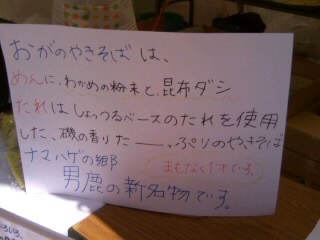 おがのやきそばは、
めんに、わかめの粉末と、昆布ダシ
たれはしょっつるベースのたれを使用
した、磯の香りたーーっ、ぷりのやきそば
ナマハゲの郷
まもなく1才です。
男鹿の新名物です。